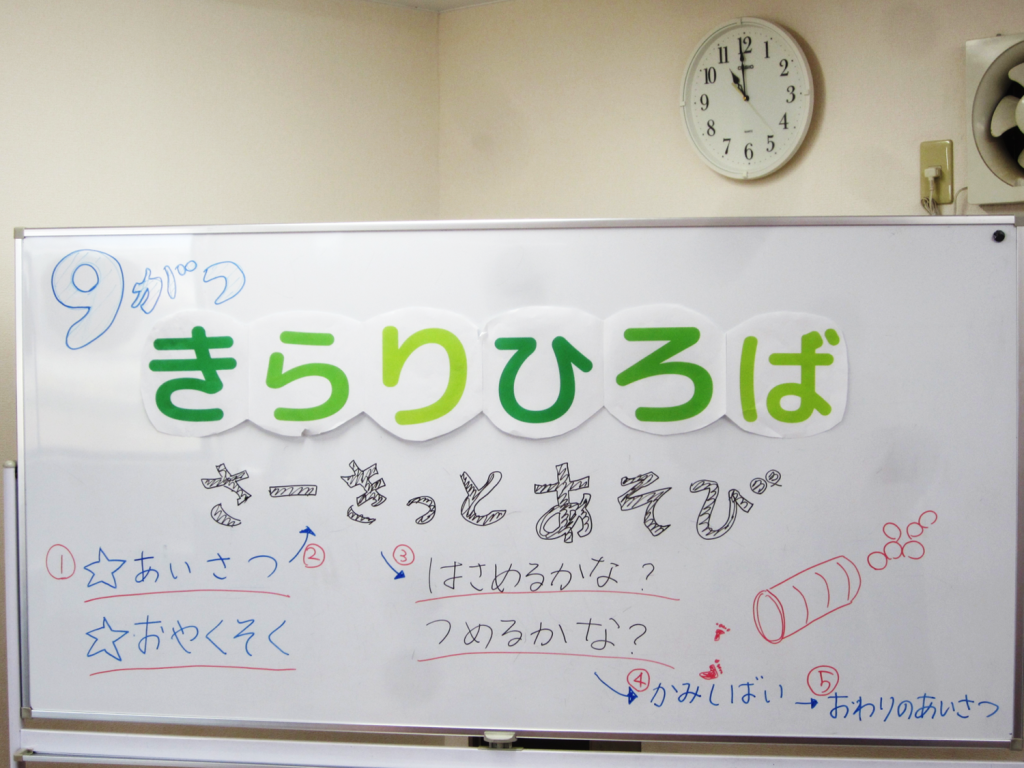 12
1
2
3
4
5
6
7
8
9
10
11
9がつ
きらりひろば
さーきっとあそび
① ☆あいさつ ②
☆おやくそく
③ はさめるかな？
つめるかな？
④ かみしばい → ⑤ おわりのあいさつ